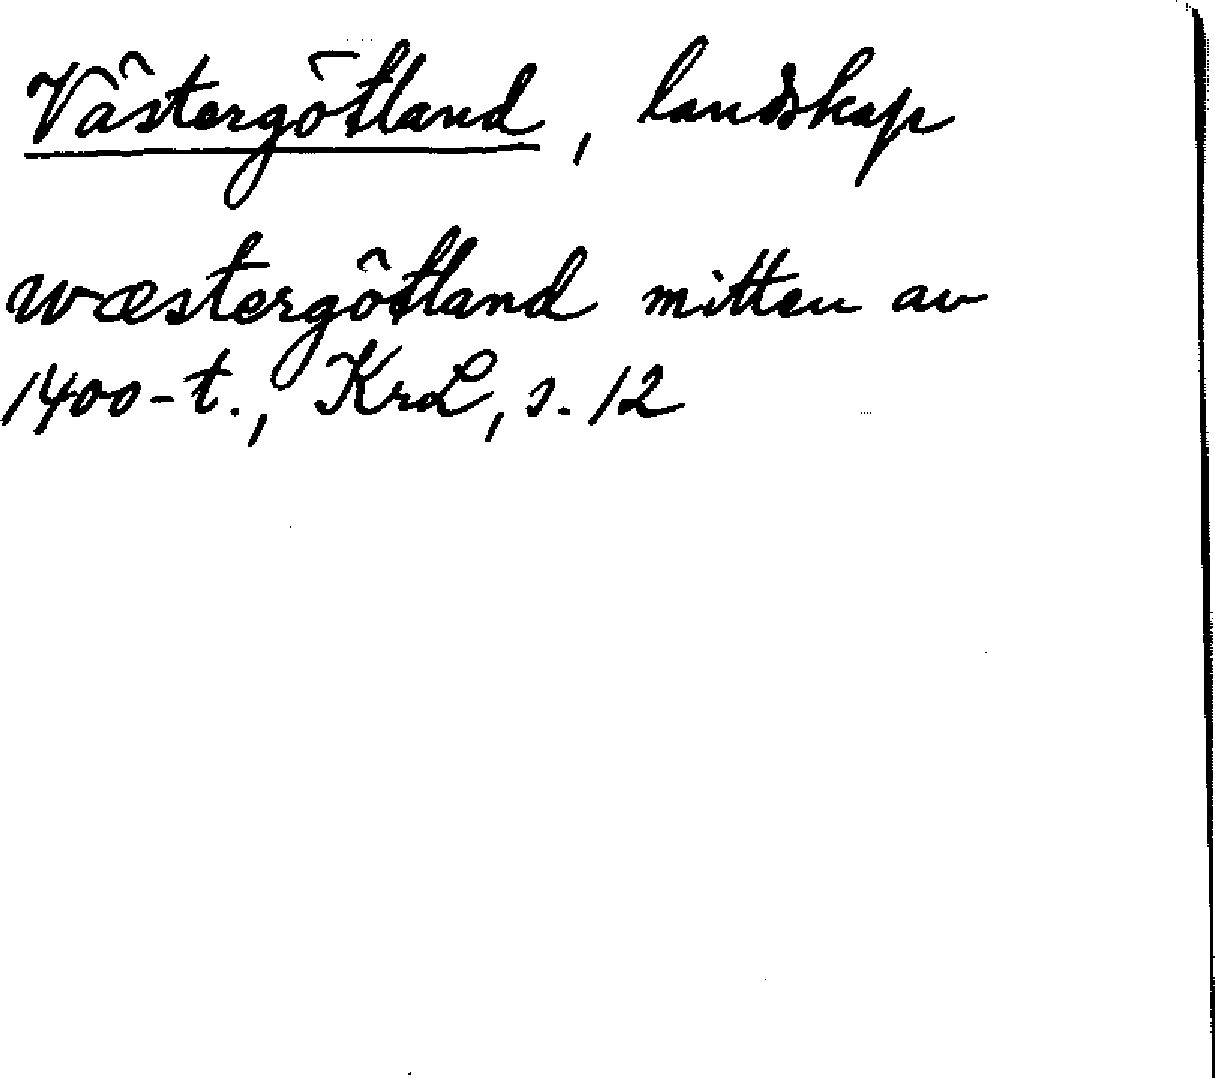 Västergötland, landskap
wæstergötland mitten av
1400-t., KrL, s. 12